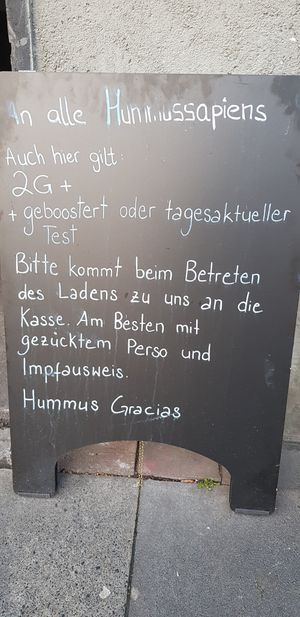 An alle Hummussapiens
Auch hier gilt:
2G+
+ geboostert oder tagesaktueller
Test
Bitte kommt beim Betreten
des Ladens zu uns an die
Kasse. Am Besten mit
gezücktem Perso und
Impfausweis.
Hummus Gracias